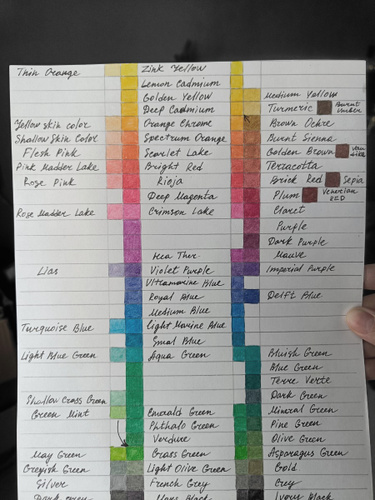 Thin Orange Zink Yellow
Lemon Cadmium
Golden Yellow Medium Yellow
Deep Cadmium Turmeric Burnt Umber
Yellow skin color Orange Chrome Brown Ochre
Shallow Skin Color Spectrum Orange Burnt Sienna
Flesh Pink Scarlet Lake Golden Brown Van
Pink Madder Lake Bright Red Terracotta
Rose Pink Rioja Brick Red Sepia
Deep Magenta Plum Venetian RED
Rose Madder Lake Crimson Lake Claret
Purple
Dark Purple
Hea Ther Mauve
Lias Violet Purple Imperial Purple
Ultramarine Blue
Royal Blue Delft Blue
Medium Blue
Turquoise Blue Light Marine Blue
Smal Blue
Light Blue Green Aqua Green Bluish Green
Blue Green
Terre Verte
Shallow Grass Green Dark Green
Green Mint Emerald Green Mineral Green
Phthalo Green Pine Green
Verdure Olive Green
May Green Grass Green Asparagus Green
Greyish Green Light Olive Green Gold
Silver French Grey Grey
Dark grey Mars Black Ivory Black